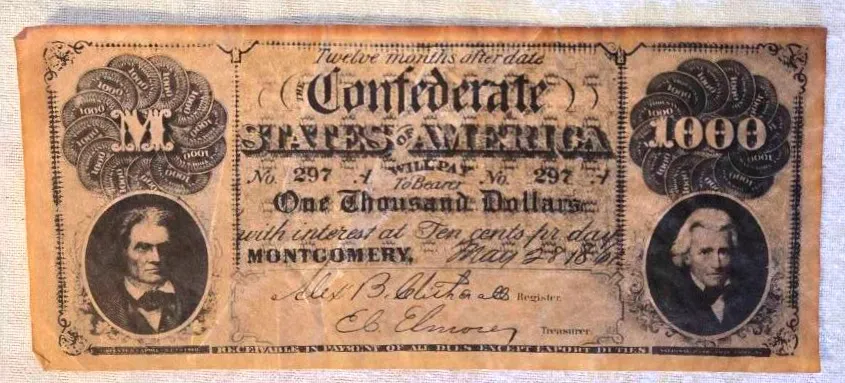 Twelve months after date
THE Confederate
STATES OF AMERICA
M
1000
WILL PAY
No. 297 A To Bearer No. 297 A
One Thousand Dollars
with interest at Ten cents pr day
MONTGOMERY, May 28 1861
Alex B. Clitherall Register.
E C Elmore Treasurer.
RECEIVABLE IN PAYMENT OF ALL DUES EXCEPT EXPORT DUTIES